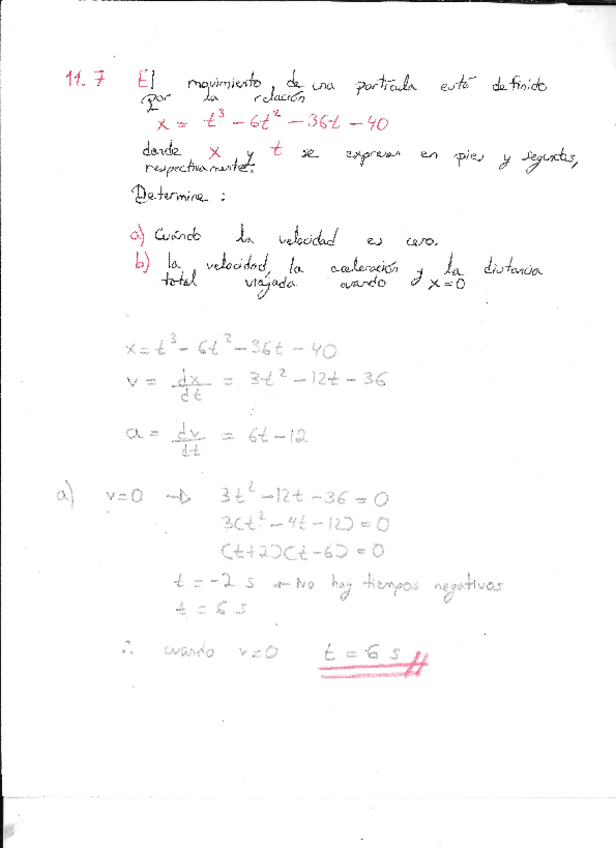 11.7 El movimiento de una partícula está definido
por la relación
x = t³ - 6t² - 36t - 40
donde x y t se expresan en pies y segundos,
respectivamente.
Determine :
a) Cuándo la velocidad es cero.
b) la velocidad, la aceleración y la distancia
total viajada cuando x=0
x = t³ - 6t² - 36t - 40
v = dx/dt = 3t² - 12t - 36
a = dv/dt = 6t - 12
a) v=0 → 3t² - 12t - 36 = 0
3(t² - 4t - 12) = 0
(t+2)(t-6) = 0
t = -2 s ← No hay tiempos negativos
t = 6 s
∴ cuando v=0 t = 6 s